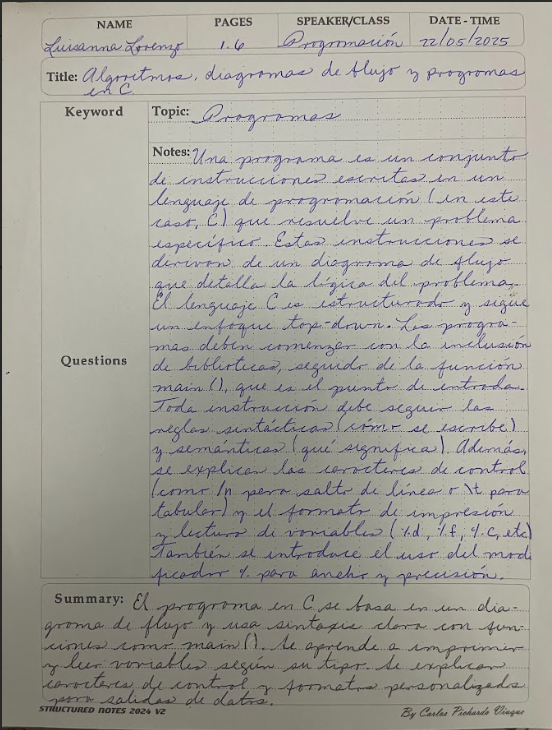 NAME PAGES SPEAKER/CLASS DATE - TIME
Luisanna Lorenzo 1.6 Programación 22/05/2025
Title: Algoritmos, diagramas de flujo y programas
en C
Keyword
Topic: Programas
Notes: Una programa es un conjunto
de instrucciones escritas en un
lenguaje de programación (en este
caso, C) que resuelve un problema
específico. Estas instrucciones se
derivan de un diagrama de flujo
que detalla la lógica del problema.
El lenguaje C es estructurado y sigue
un enfoque top-down. Los progra-
mas deben comenzar con la inclusión
Questions
de bibliotecas, seguido de la función
main (), que es el punto de entrada.
Toda instrucción debe seguir las
reglas sintácticas (cómo se escribe)
y semánticas (qué significa). Además,
se explican los caracteres de control
(como \n para salto de línea o \t para
tabular) y el formato de impresión
y lectura de variables (%d, %f, %c, etc)
También se introduce el uso del modi
ficador % para ancho y precisión.
Summary: El programa en C se basa en un dia-
grama de flujo y usa sintaxis clara con fun-
ciones como main (). Se aprende a imprimir
y leer variables según su tipo. Se explican
caracteres de control y formatos personalizados
para salidas de datos.
STRUCTURED NOTES 2024 V2 By Carlos Pichardo Viuque